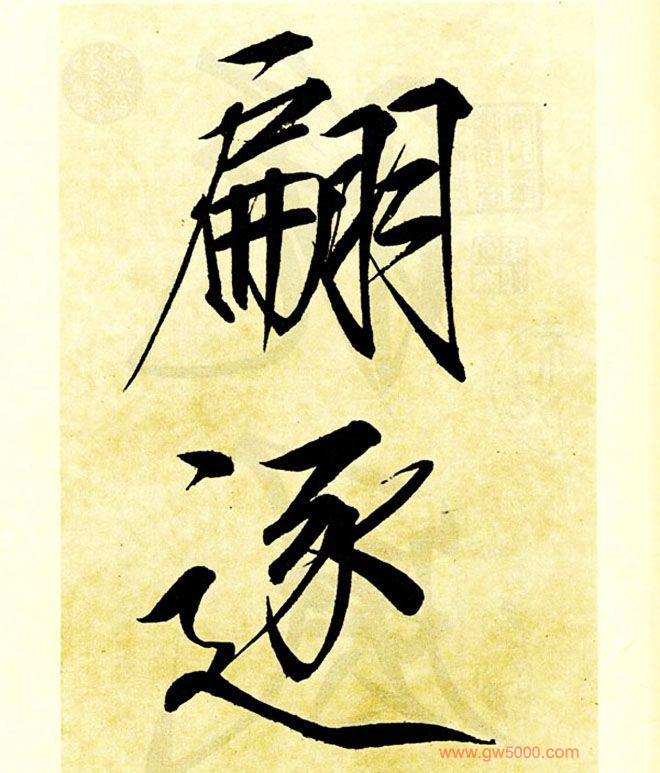 翩逐
www.gw5000.com